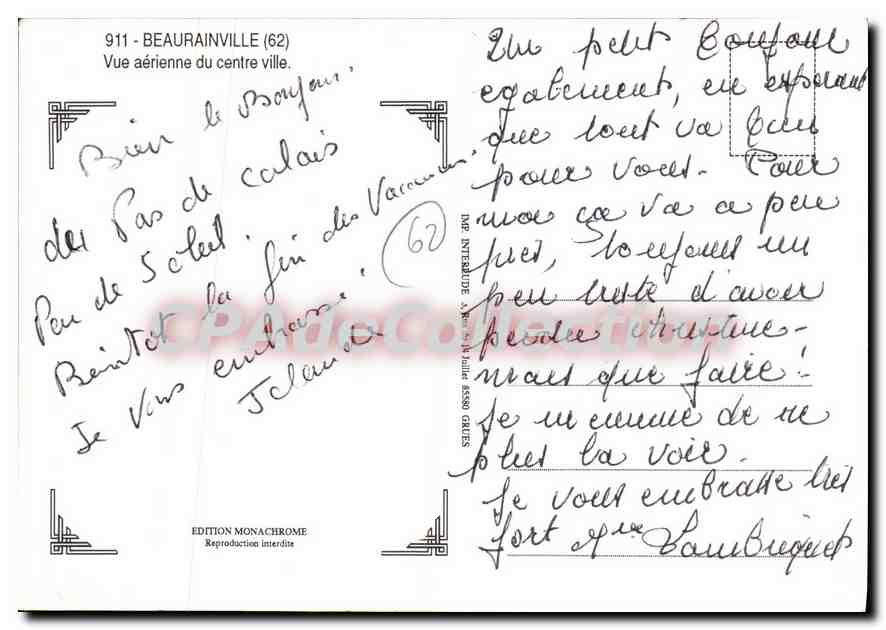 911 - BEAURAINVILLE (62)
Vue aérienne du centre ville.
Bien le Bonjour
du Pas de Calais
Peu de Soleil.
Bientot la fin des Vacances.
Je vous embrasse.
62
EDITION MONACHROME
Reproduction interdite
IMP. INTERRUDE 3, Rue du 14 Juillet 85580 GRUES
Un petit Bonjour
egalement, en esperant
que tout va bien
pour vous. Pour
moi ça va a peu
près, toujours un
peu triste d'avoir
perdu
mais que faire!
Je m'ennuie de ne
plus la voir.
Je vous embrasse très
fort Mme
CPAdeCollection.com